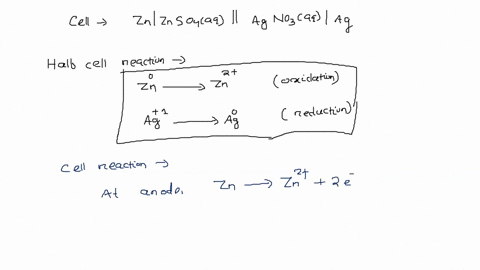 Cell → Zn|ZnSO4(aq) || AgNO3(aq) | Ag
Half cell reaction →
Zn⁰ → Zn²⁺ (oxidation)
Ag⁺¹ → Ag⁰ (reduction)
Cell reaction →
At anode, Zn → Zn²⁺ + 2e⁻